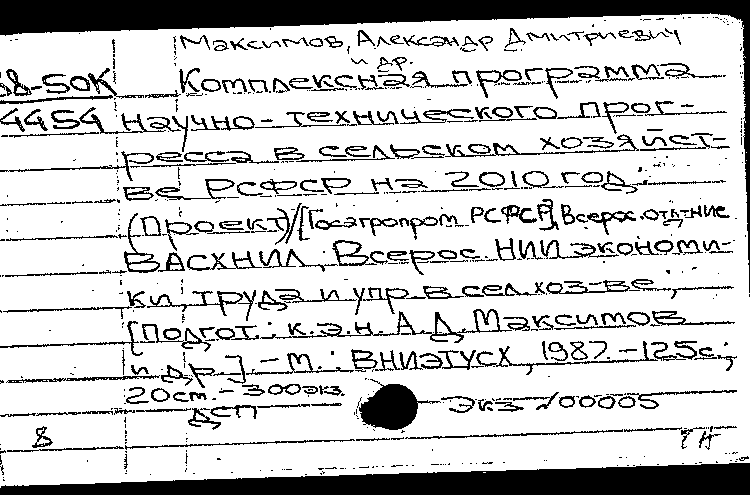 Максимов, Александр Дмитриевич
и др.
88-50К Комплексная программа
4454 научно-технического прог-
ресса в сельском хозяйст-
ве РСФСР на 2010 год:
(Проект)/[Госагропром РСФСР], Всерос. отд-ние
ВАСХНИЛ, Всерос. НИИ экономи-
ки, труда и упр. в сел. хоз-ве;
[Подгот.: к.э.н. А.Д. Максимов
и др.]. - М.: ВНИЭТУСХ, 1987. - 125с.;
20см. - 300экз.
ДСП экз №00005
8